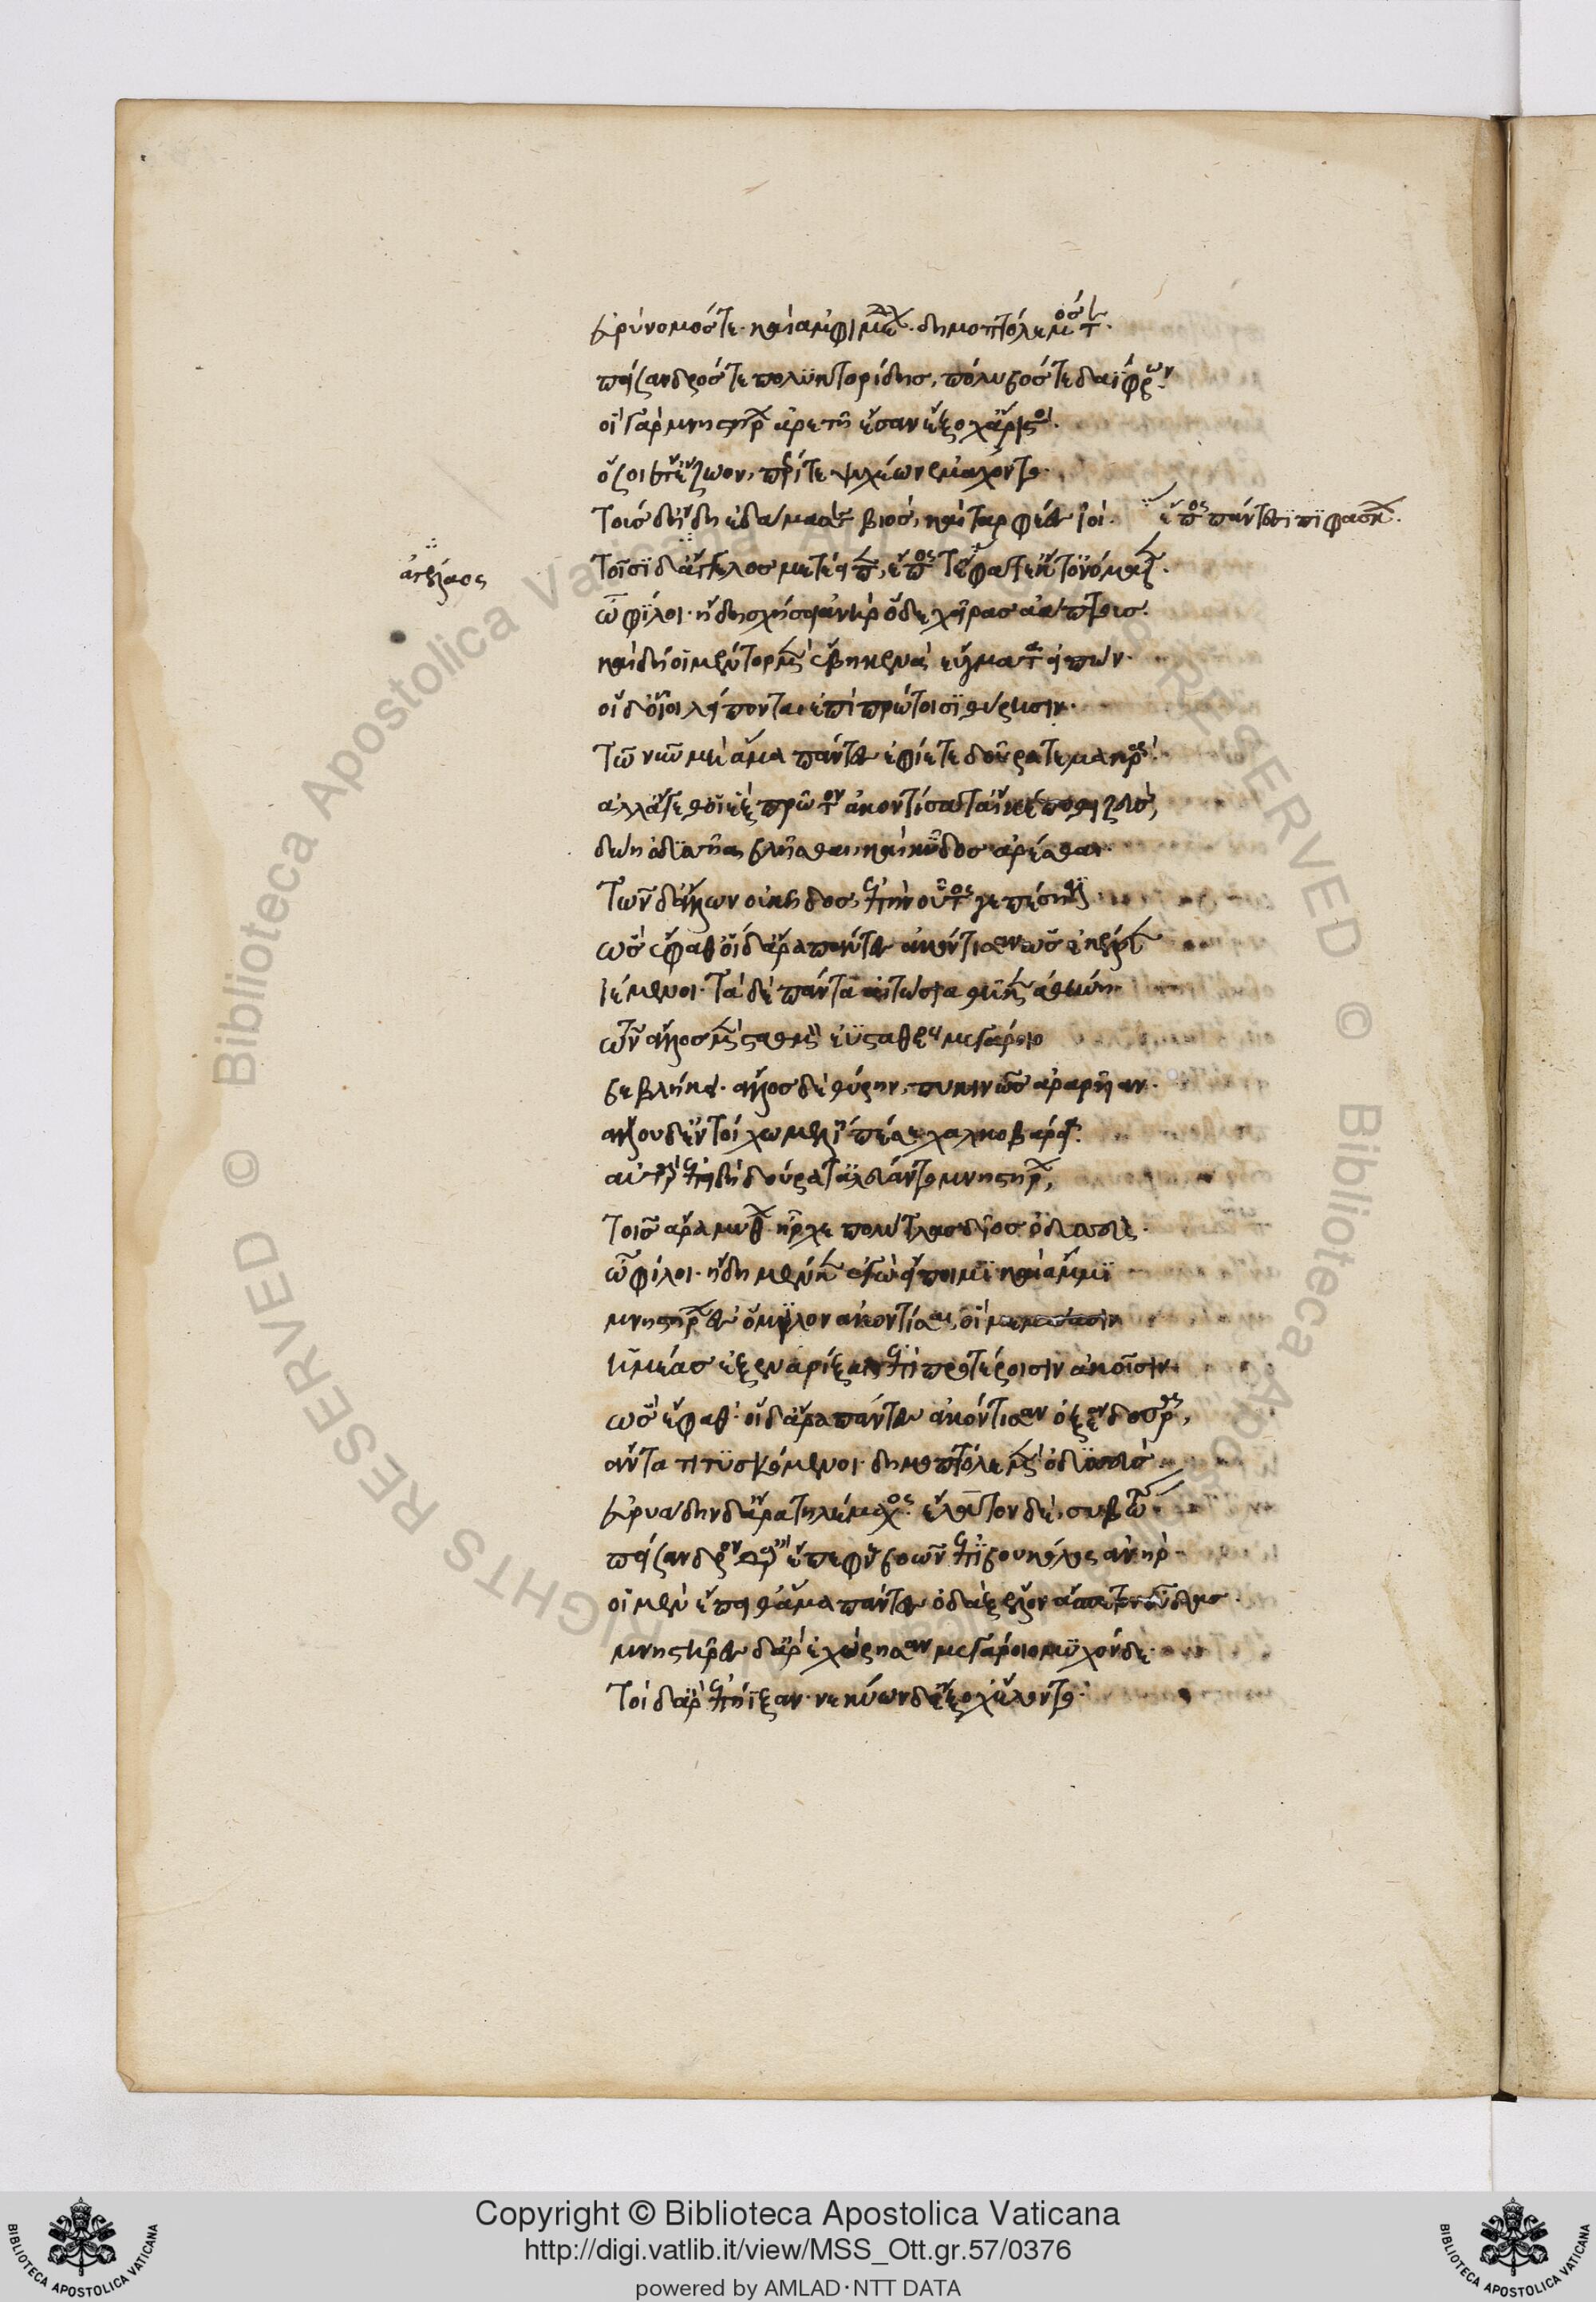 εὐρύνομός τε· καὶ ἀμφιμέδων· δημοπτόλεμός τε·
πείσανδρός τε πολυκτορίδης, πόλυβός τε δαΐφρων·
οἳ γὰρ μνηστήρων ἀρετῇ ἔσαν ἔξοχ' ἄριστοι·
ὅσσοι ἔτ' ἔζωον, περί τε ψυχέων ἐμάχοντο·
τοὺς δ' ἤδη ἐδάμασσε βιὸς, καὶ ταρφέες ἰοί· ἔπος πάντεσσι πιφαύσκων·
ἀγέλαος
τοῖσι δ' ἄγγελος μετέειπεν, ἔπος τ' ἔφατ' ἔκ τ' ὀνόμαζεν·
ὦ φίλοι· ἤδη σχήσει ἀνὴρ ὅδε χεῖρας ἀάπτους·
καὶ δή οἱ μέντωρ μὲν ἔβη κενὰ εὔγματα εἰπών·
οἱ δ' οἶοι λείπονται ἐπὶ πρώτοισι θύρῃσιν·
τῶ νῦν μὴ ἅμα πάντες ἐφίετε δούρατε μακρά·
ἀλλ' ἄγεθ' οἱ ἓξ πρῶτον ἀκοντίσατ' αἴ κέ ποθι ζεὺς,
δώῃ ὀδυσσῆα βλῆσθαι, καὶ κῦδος ἀρέσθαι·
τῶν δ' ἄλλων οὐ κῆδος, ἐπὴν οὗτος γε πέσῃσιν·
ὣς ἔφαθ' οἱ δ' ἄρα πάντες ἀκόντισαν ὡς ἐκέλευεν
ἱέμενοι· τὰ δὲ πάντα ἐτώσια θῆκεν ἀθήνη·
τῶν ἄλλος μὲν σταθμὸν ἐϋσταθέος μεγάροιο
βεβλήκει· ἄλλος δὲ θύρην, πυκινῶς ἀραρυῖαν·
ἄλλου δ' ἐν τοίχῳ μελίη πέσε χαλκοβάρεια·
αὐτὰρ ἐπεὶ δὴ δούρατ' ἀλεύαντο μνηστήρων,
τοῖς ἄρα μύθων ἦρχε πολύτλας δῖος ὀδυσσεύς·
ὦ φίλοι· ἤδη μέν κεν ἐγὼν εἴποιμι καὶ ἄμμι
μνηστήρων ἐς ὅμιλον ἀκοντίσαι, οἳ μεμάασιν
ἡμέας ἐξεναρίξαι ἐπὶ προτέροισιν κακοῖσιν·
ὣς ἔφαθ'· οἱ δ' ἄρα πάντες ἀκόντισαν ὀξέα δοῦρα,
ἄντα τιτυσκόμενοι· δημοπτόλεμον μὲν ὀδυσσεύς·
εὐρυάδην δ' ἄρα τηλέμαχος· ἔλατον δὲ, συβώτης
πείσανδρον δ' ἄρ' ἔπεφνε βοῶν ἐπιβουκόλος ἀνήρ·
οἱ μὲν ἔπειθ' ἅμα πάντες ὀδὰξ ἕλον ἄσπετον οὖδας·
μνηστῆρες δ' ἄρ' ἐχώρησαν μεγάροιο μυχόνδε·
τοὶ δ' ἄρ' ἐπήϊξαν· νεκύων δ' ἐξ ἔγχε' ἕλοντο·
Copyright © Biblioteca Apostolica Vaticana
http://digi.vatlib.it/view/MSS_Ott.gr.57/0376
powered by AMLAD·NTT DATA